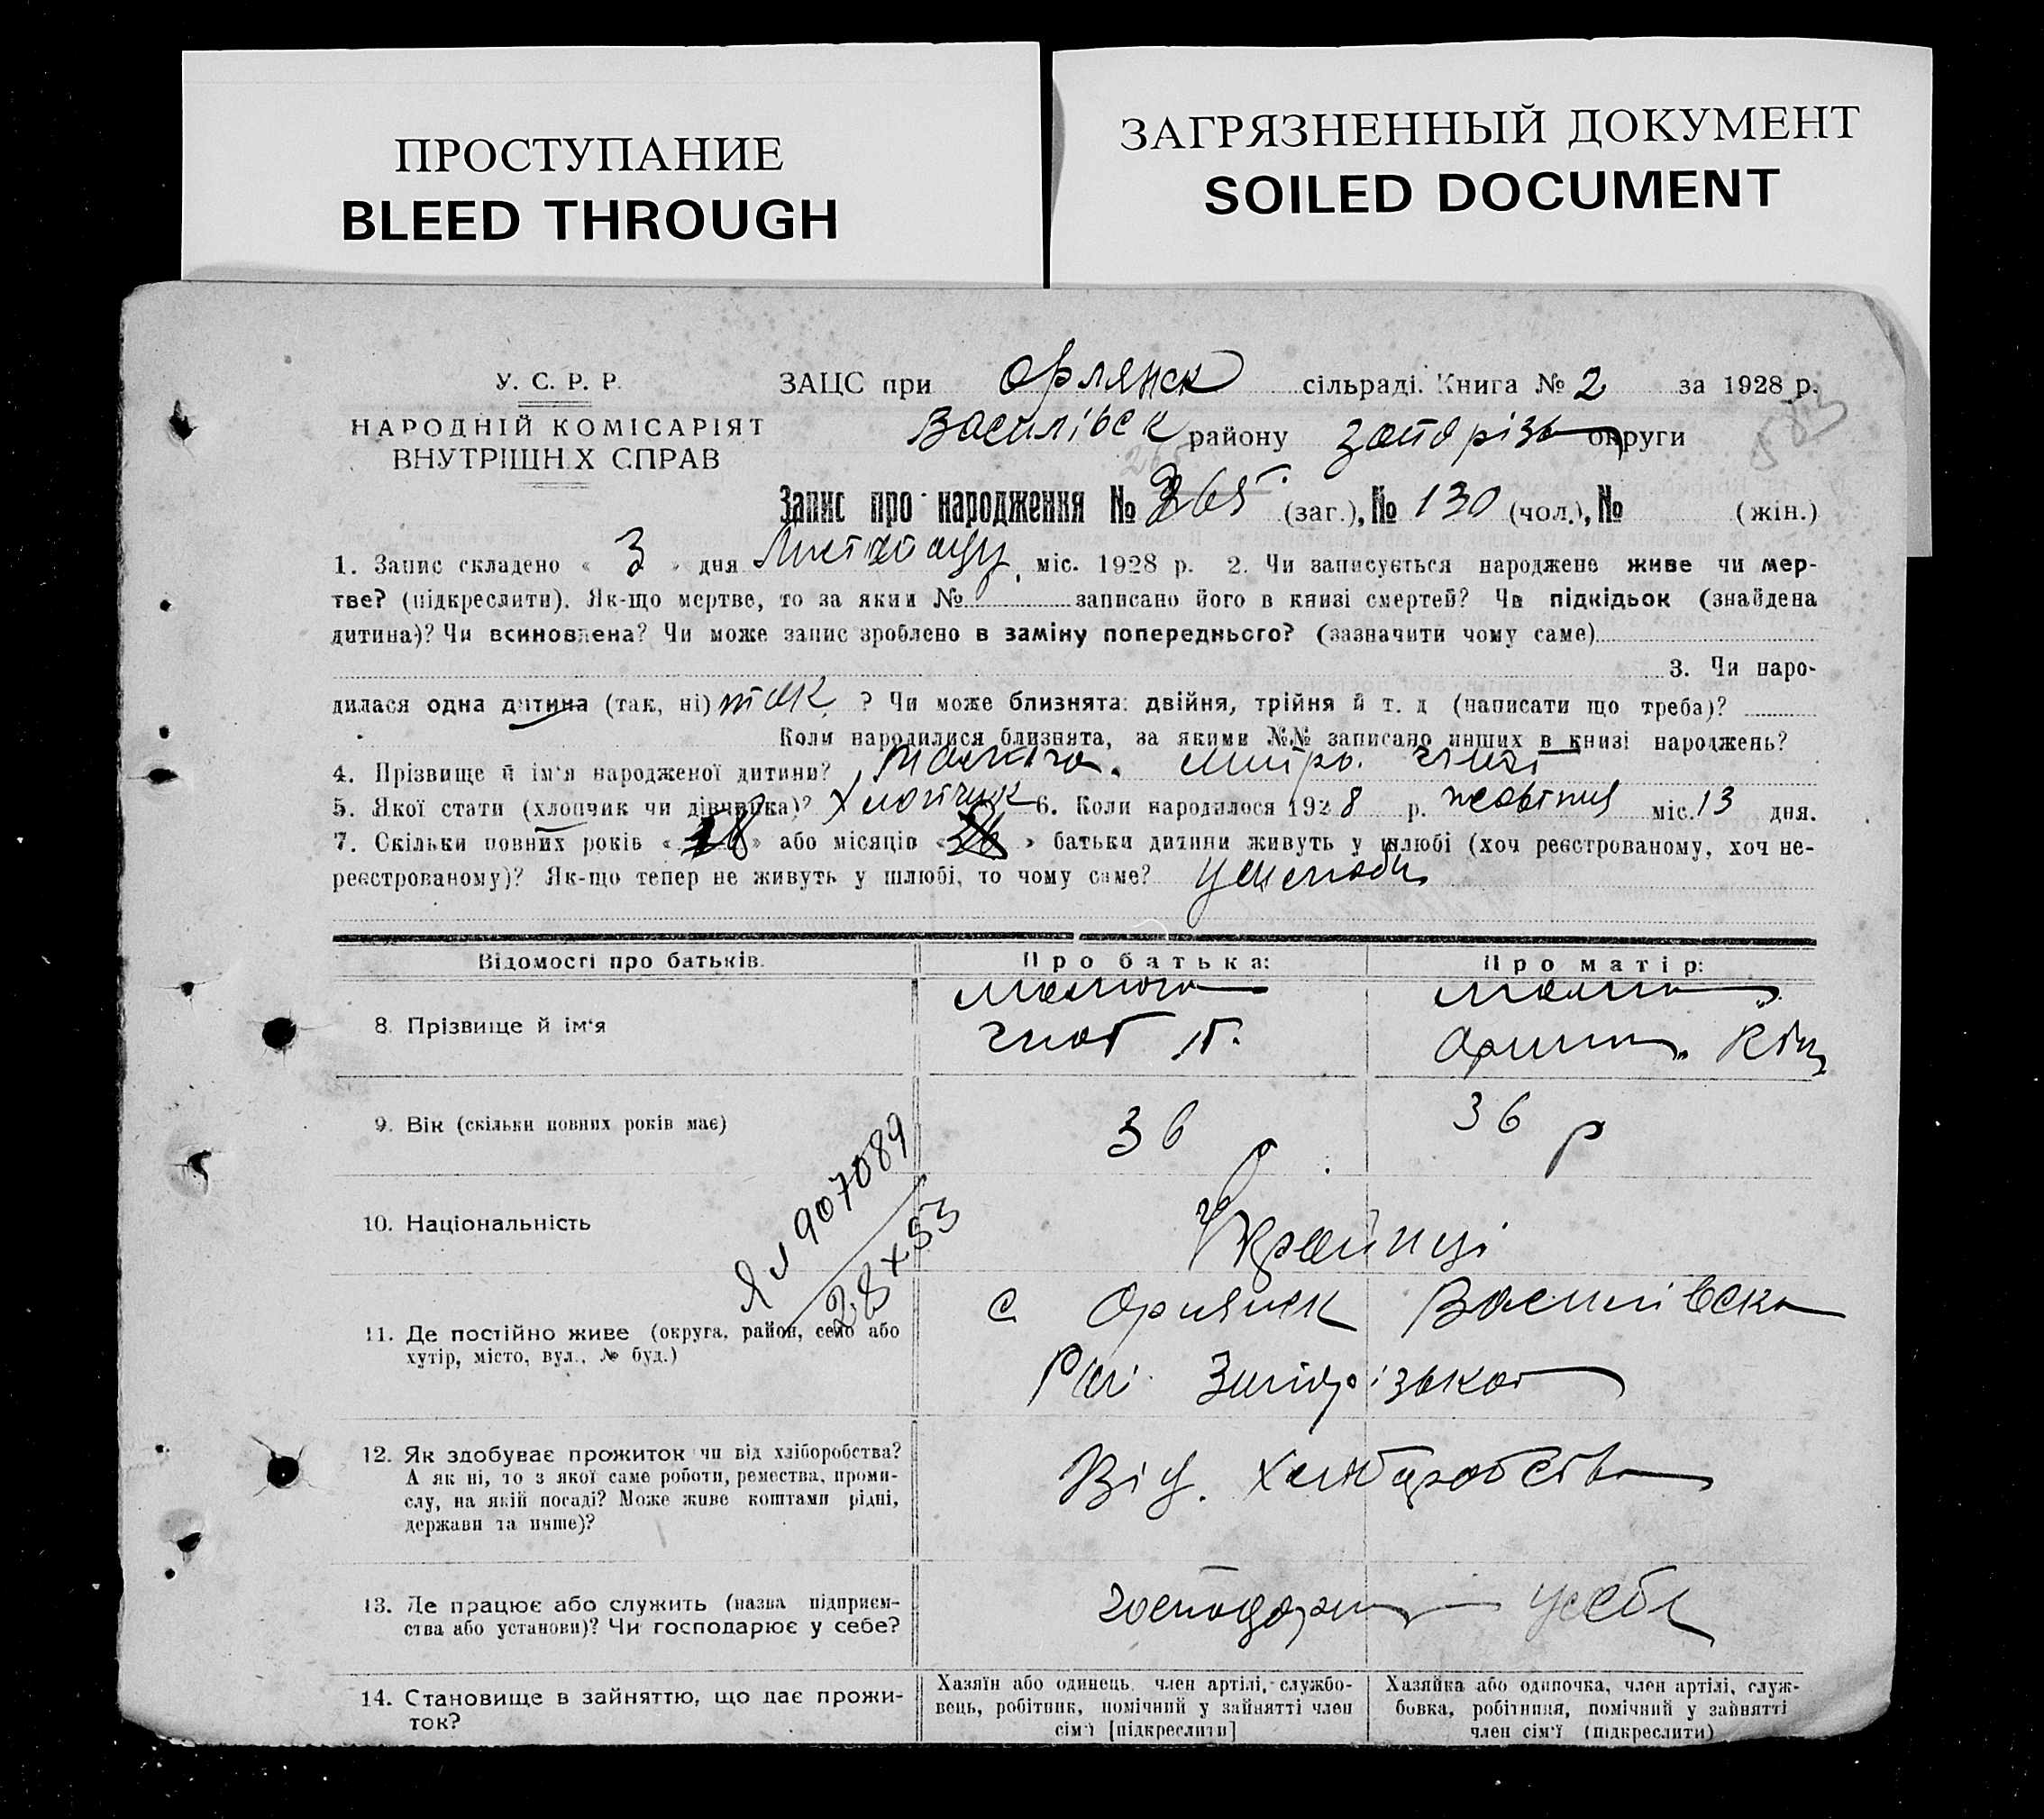 ПРОСТУПАНИЕ
BLEED THROUGH
ЗАГРЯЗНЕННЫЙ ДОКУМЕНТ
SOILED DOCUMENT
У. С. Р. Р.
НАРОДНІЙ КОМІСАРІЯТ
ВНУТРІШН Х СПРАВ
ЗАЦС при Орлянск сільраді. Книга № 2 за 1928 р.
583
Василівск району Запорізь округи
265
Запис про народження № 265 (заг.), № 130 (чол.), № (жін.)
1. Запис складено « 3 » дня Листопаду міс. 1928 р. 2. Чи записується народжене живе чи мер-
тве? (підкреслити). Як-що мертве, то за яким № записано його в книзі смертей? Чи підкідьок (знайдена
дитина)? Чи всиновлена? Чи може запис зроблено в заміну попереднього? (зазначити чому саме)
3. Чи наро-
дилася одна дитина (так, ні) так ? Чи може близнята: двійня, трійня й т. д (написати що треба)?
Коли народилися близнята, за якими №№ записано инших в книзі народжень?
4. Прізвище й ім'я народженої дитини?
5. Якої стати (хлопчик чи дівчинка)? Хлопчик 6. Коли народилося 1928 р. жовтня міс. 13 дня.
7. Скільки повних років « 18 » або місяців « » батьки дитини живуть у шлюбі (хоч реєстрованому, хоч не-
реєстрованому)? Як-що тепер не живуть у шлюбі, то чому саме?
Відомості про батьків.
Про батька:
Про матір:
8. Прізвище й ім'я
9. Вік (скільки повних років має)
36
36 р
10. Національність
Українці
Я л 907089
28 X 53
11. Де постійно живе (округа, район, село або
хутір, місто, вул., № буд.)
с Орлянск Василівска
Запорізькот
12. Як здобуває прожиток чи від хліборобства?
А як ні, то з якої саме роботи, ремества, проми-
слу, на якій посаді? Може живе коштами рідні,
держави та инше)?
Від. Хліборобства
13. Де працює або служить (назва підприєм-
ства або установи)? Чи господарює у себе?
господарю усебе
14. Становище в зайняттю, що дає прожи-
ток?
Хазяїн або одинець, член артілі, службо-
вець, робітник, помічний у зайнятті член
сім'ї [підкреслити]
Хазяйка або одиночка, член артілі, служ-
бовка, робітниця, помічний у зайнятті
член сім'ї (підкреслити)